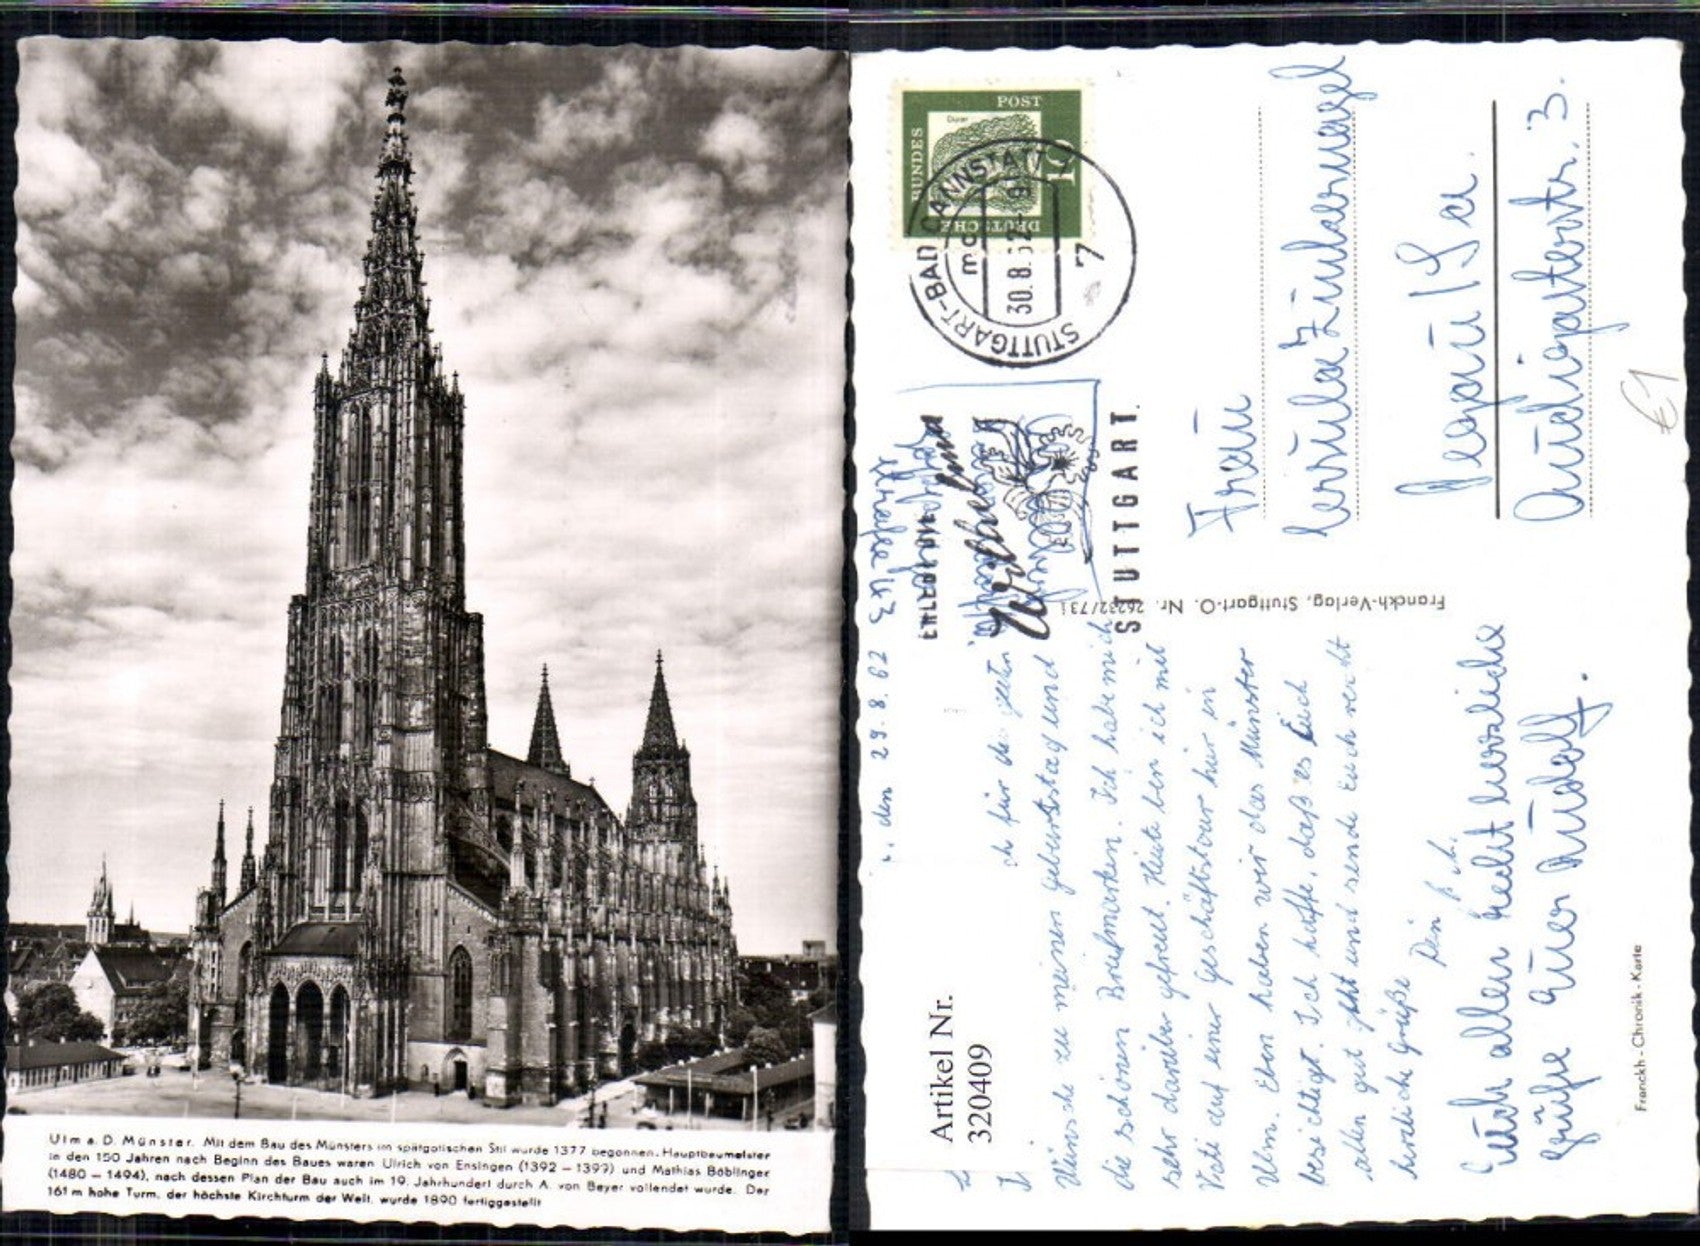 Ulm a. D. Münster. Mit dem Bau des Münsters im spätgotischen Stil wurde 1377 begonnen. Hauptbaumeister
in den 150 Jahren nach Beginn des Baues waren Ulrich von Ensingen (1392 – 1399) und Mathias Böblinger
(1480 – 1494), nach dessen Plan der Bau auch im 19. Jahrhundert durch A. von Beyer vollendet wurde. Der
161 m hohe Turm, der höchste Kirchturm der Welt, wurde 1890 fertiggestellt
DEUTSCHE BUNDES POST
Dürer
10
STUTTGART-BAD CANNSTATT
30.8.62-9
7
Wilhelma
STUTTGART.
Artikel Nr.
320409
den 29.8.62
für die
Wünsche zu meinem Geburtstag und
die schönen Briefmarken. Ich habe mich
sehr darüber gefreut. Heute bin ich mit
Vati auf einer Geschäftstour hier in
Ulm. Eben haben wir das Münster
besichtigt. Ich hoffe, daß es Euch
allen gut geht und sende Euch recht
herzliche Grüße
Dein
Euch allen recht herzliche
Grüße Euer Rudolf.
Franckh-Verlag, Stuttgart-O. Nr. 26232/731
Franckh-Chronik-Karte
Frau
Ursula Zindarnagel
Pegau / Sa.
Audigasterstr. 3.
€1